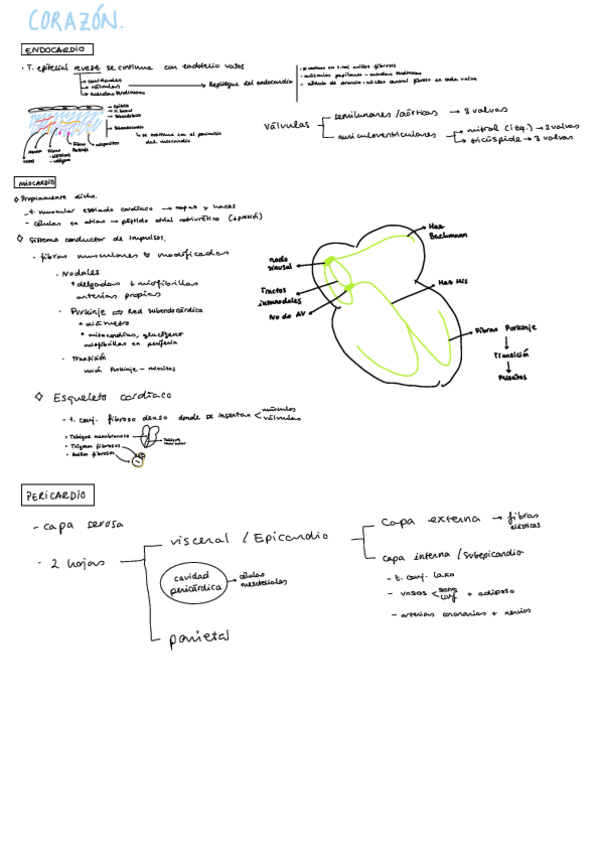 CORAZÓN.
ENDOCARDIO
· T. epitelial reveste se continua con endotelio vasos
cavidades
válvulas → Repliegue del endocardio
cuerdas tendinosas
músculos papilares - cuerdas tendinosas
Válvulas
semilunares /aórticas → 3 valvas
auriculoventriculares
mitral (izq.) → 2 valvas
tricúspide → 3 valvas
se continua con el perimisio
del miocardio
MIOCARDIO
Propiamente dicho.
- t. muscular estriado cardíaco → capas y haces
- células en atrios → péptido atrial natriurético
Sistema conductor de impulsos.
- fibras musculares modificadas
· Nodales
* delgadas ↓ miofibrillas
arterias propias
· Purkinje ⇒ Red subendocárdica
* diámetro
* mitocondrias, glucógeno
miofibrillas en periferia
· Transición
unión Purkinje - miocitos
nodo
sinusal
Tractos
internodales
Nodo AV
Haz
Bachmann
Haz His
Fibras Purkinje
↓
Transición
↓
Miocitos
Esqueleto cardíaco
- t. conj. fibroso denso donde se insertan < músculos
válvulas
· Tabique membranoso
· Trígonos fibrosos
· Anillos fibrosos
PERICARDIO
- capa serosa
· 2 hojas
visceral / Epicardio
cavidad
pericárdica
→ células
mesoteliales
parietal
Capa externa → fibras
elásticas
capa interna / Subepicardio
- t. conj. laxo
- vasos < sang
linf + adiposo
- arterias coronarias + nervios